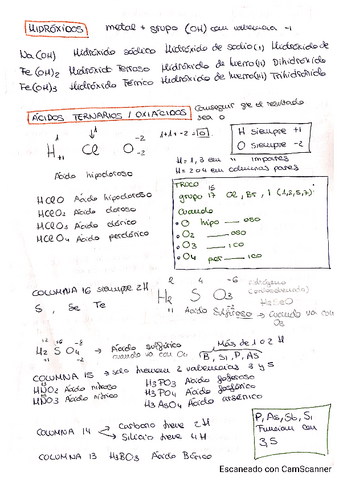 HIDRÓXIDOS metal + grupo (OH) con valencia -1
Na(OH) Hidróxido sódico Hidróxido de sodio(I) Hidróxido de
Fe(OH)2 Hidróxido Ferroso Hidróxido de hierro(II) Dihidróxido
Fe(OH)3 Hidróxido Férrico Hidróxido de hierro(III) Trihidróxido
ÁCIDOS TERNARIOS / OXIÁCIDOS Conseguir que el resultado
sea 0
1 1 -2
H Cl O
+1 -2
1+1-2=0
H siempre +1
O siempre -2
Ácido hipocloroso
H= 1, 3 en impares
H= 2 o 4 en columnas pares
HClO Ácido hipocloroso
HClO2 Ácido cloroso
HClO3 Ácido clórico
HClO4 Ácido perclórico
TRUCO
grupo 17 Cl, Br, I (1,3,5,7)
cuando
O hipo ___ oso
O2 ___ oso
O3 ___ ico
O4 per ___ ico
COLUMNA 16 siempre 2H
S, Se Te
2 4 -6
H2 S O3
Ácido Sulfuroso → cuando va con
O3
H2SO4 → Ácido sulfúrico
cuando va con O4
Más de 1 o 2 H
B, Si, P, As
COLUMNA 15 → solo tienen 2 valencias 3 y 5
HNO2 Ácido nitroso
HNO3 Ácido nítrico
H3PO3 Ácido fosforoso
H3PO4 Ácido fosfórico
H3AsO4 Ácido arsénico
P, As, Sb, Si
Funcionan con
3, 5
COLUMNA 14 Carbono tiene 2H
Silicio tiene 4H
COLUMNA 13 H3BO3 Ácido Bórico
Escaneado con CamScanner